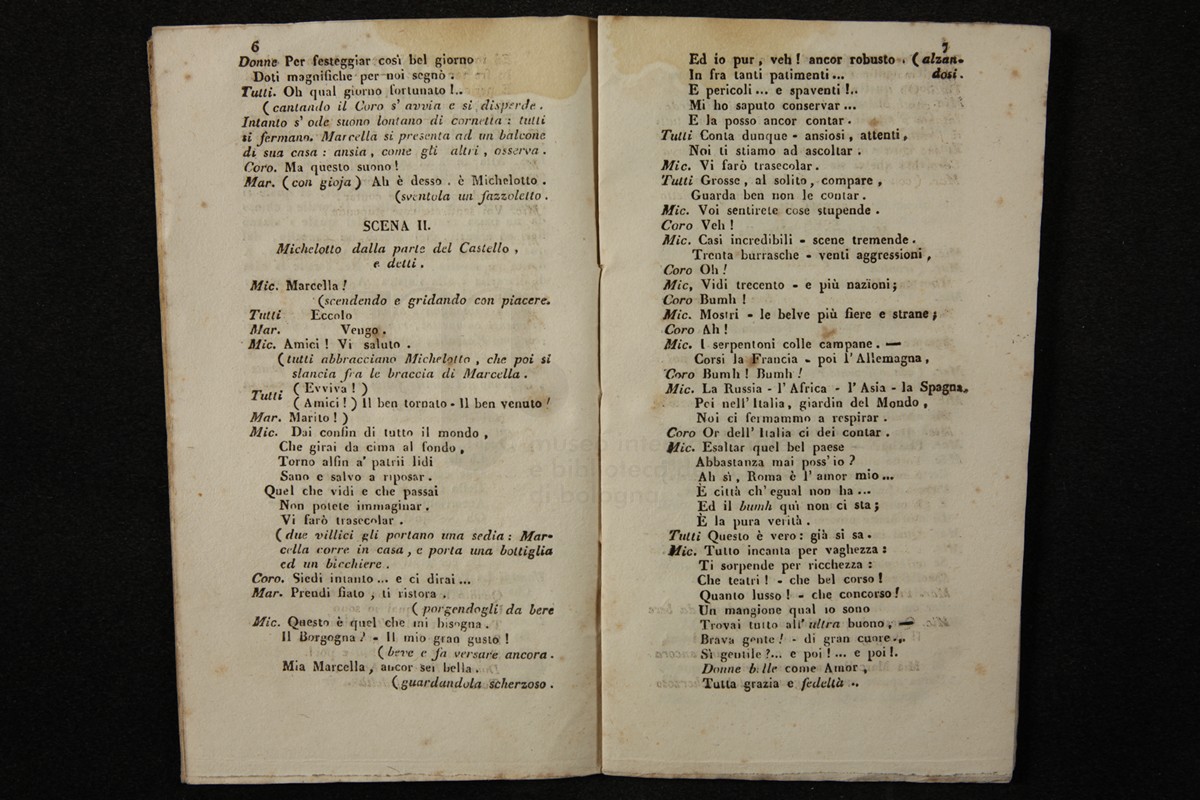 6
Donne Per festeggiar così bel giorno
Doti magnifiche per noi segnò.
Tutti. Oh qual giorno fortunato!..
(cantando il Coro s' avvia e si disperde.
Intanto s' ode suono lontano di cornetta: tutti
si fermano. Marcella si presenta ad un balcone
di sua casa: ansia, come gli altri, osserva.
Coro. Ma questo suono!
Mar. (con gioja) Ah è desso. è Michelotto.
(sventola un fazzoletto.
SCENA II.
Michelotto dalla parte del Castello,
e detti.
Mic. Marcella!
(scendendo e gridando con piacere.
Tutti Eccolo
Mar. Vengo.
Mic. Amici! Vi saluto.
(tutti abbracciano Michelotto, che poi si
slancia fra le braccia di Marcella.
Tutti (Evviva!)
(Amici!) Il ben tornato - Il ben venuto!
Mar. Marito!)
Mic. Dai confin di tutto il mondo,
Che girai da cima al fondo,
Torno alfin a' patrii lidi
Sano e salvo a riposar.
Quel che vidi e che passai
Non potete immaginar.
Vi farò trasecolar.
(due villici gli portano una sedia: Mar-
cella corre in casa, e porta una bottiglia
ed un bicchiere.
Coro. Siedi intanto... e ci dirai...
Mar. Prendi fiato, ti ristora.
(porgendogli da bere
Mic. Questo è quel che mi bisogna.
Il Borgogna! - Il mio gran gusto!
(beve e fa versare ancora.
Mia Marcella, ancor sei bella.
(guardandola scherzoso.
7
Ed io pur, veh! ancor robusto. (alzan-
In fra tanti patimenti... dosi.
E pericoli... e spaventi!..
Mi ho saputo conservar...
E la posso ancor contar.
Tutti Conta dunque - ansiosi, attenti,
Noi ti stiamo ad ascoltar.
Mic. Vi farò trasecolar.
Tutti Grosse, al solito, compare,
Guarda ben non le contar.
Mic. Voi sentirete cose stupende.
Coro Veh!
Mic. Casi incredibili - scene tremende.
Trenta burrasche - venti aggressioni,
Coro Oh!
Mic, Vidi trecento - e più nazïoni;
Coro Bumh!
Mic. Mostri - le belve più fiere e strane;
Coro Ah!
Mic. I serpentoni colle campane. —
Corsi la Francia - poi l' Allemagna,
Coro Bumh! Bumh!
Mic. La Russia - l' Africa - l' Asia - la Spagna.
Poi nell' Italia, giardin del Mondo,
Noi ci fermammo a respirar.
Coro Or dell' Italia ci dei contar.
Mic. Esaltar quel bel paese
Abbastanza mai poss' io?
Ah sì, Roma è l' amor mio...
È città ch' egual non ha...
Ed il bumh quì non ci sta;
È la pura verità.
Tutti Questo è vero: già si sa.
Mic. Tutto incanta per vaghezza:
Ti sorpende per ricchezza:
Che teatri! - che bel corso!
Quanto lusso! - che concorso!
Un mangione qual io sono
Trovai tutto all' ultra buono, —
Brava gente! - di gran cuore...
Sì gentile?... e poi!... e poi!.
Donne belle come Amor,
Tutta grazia e fedeltà..
© museo inte
e biblioteca
di bologna